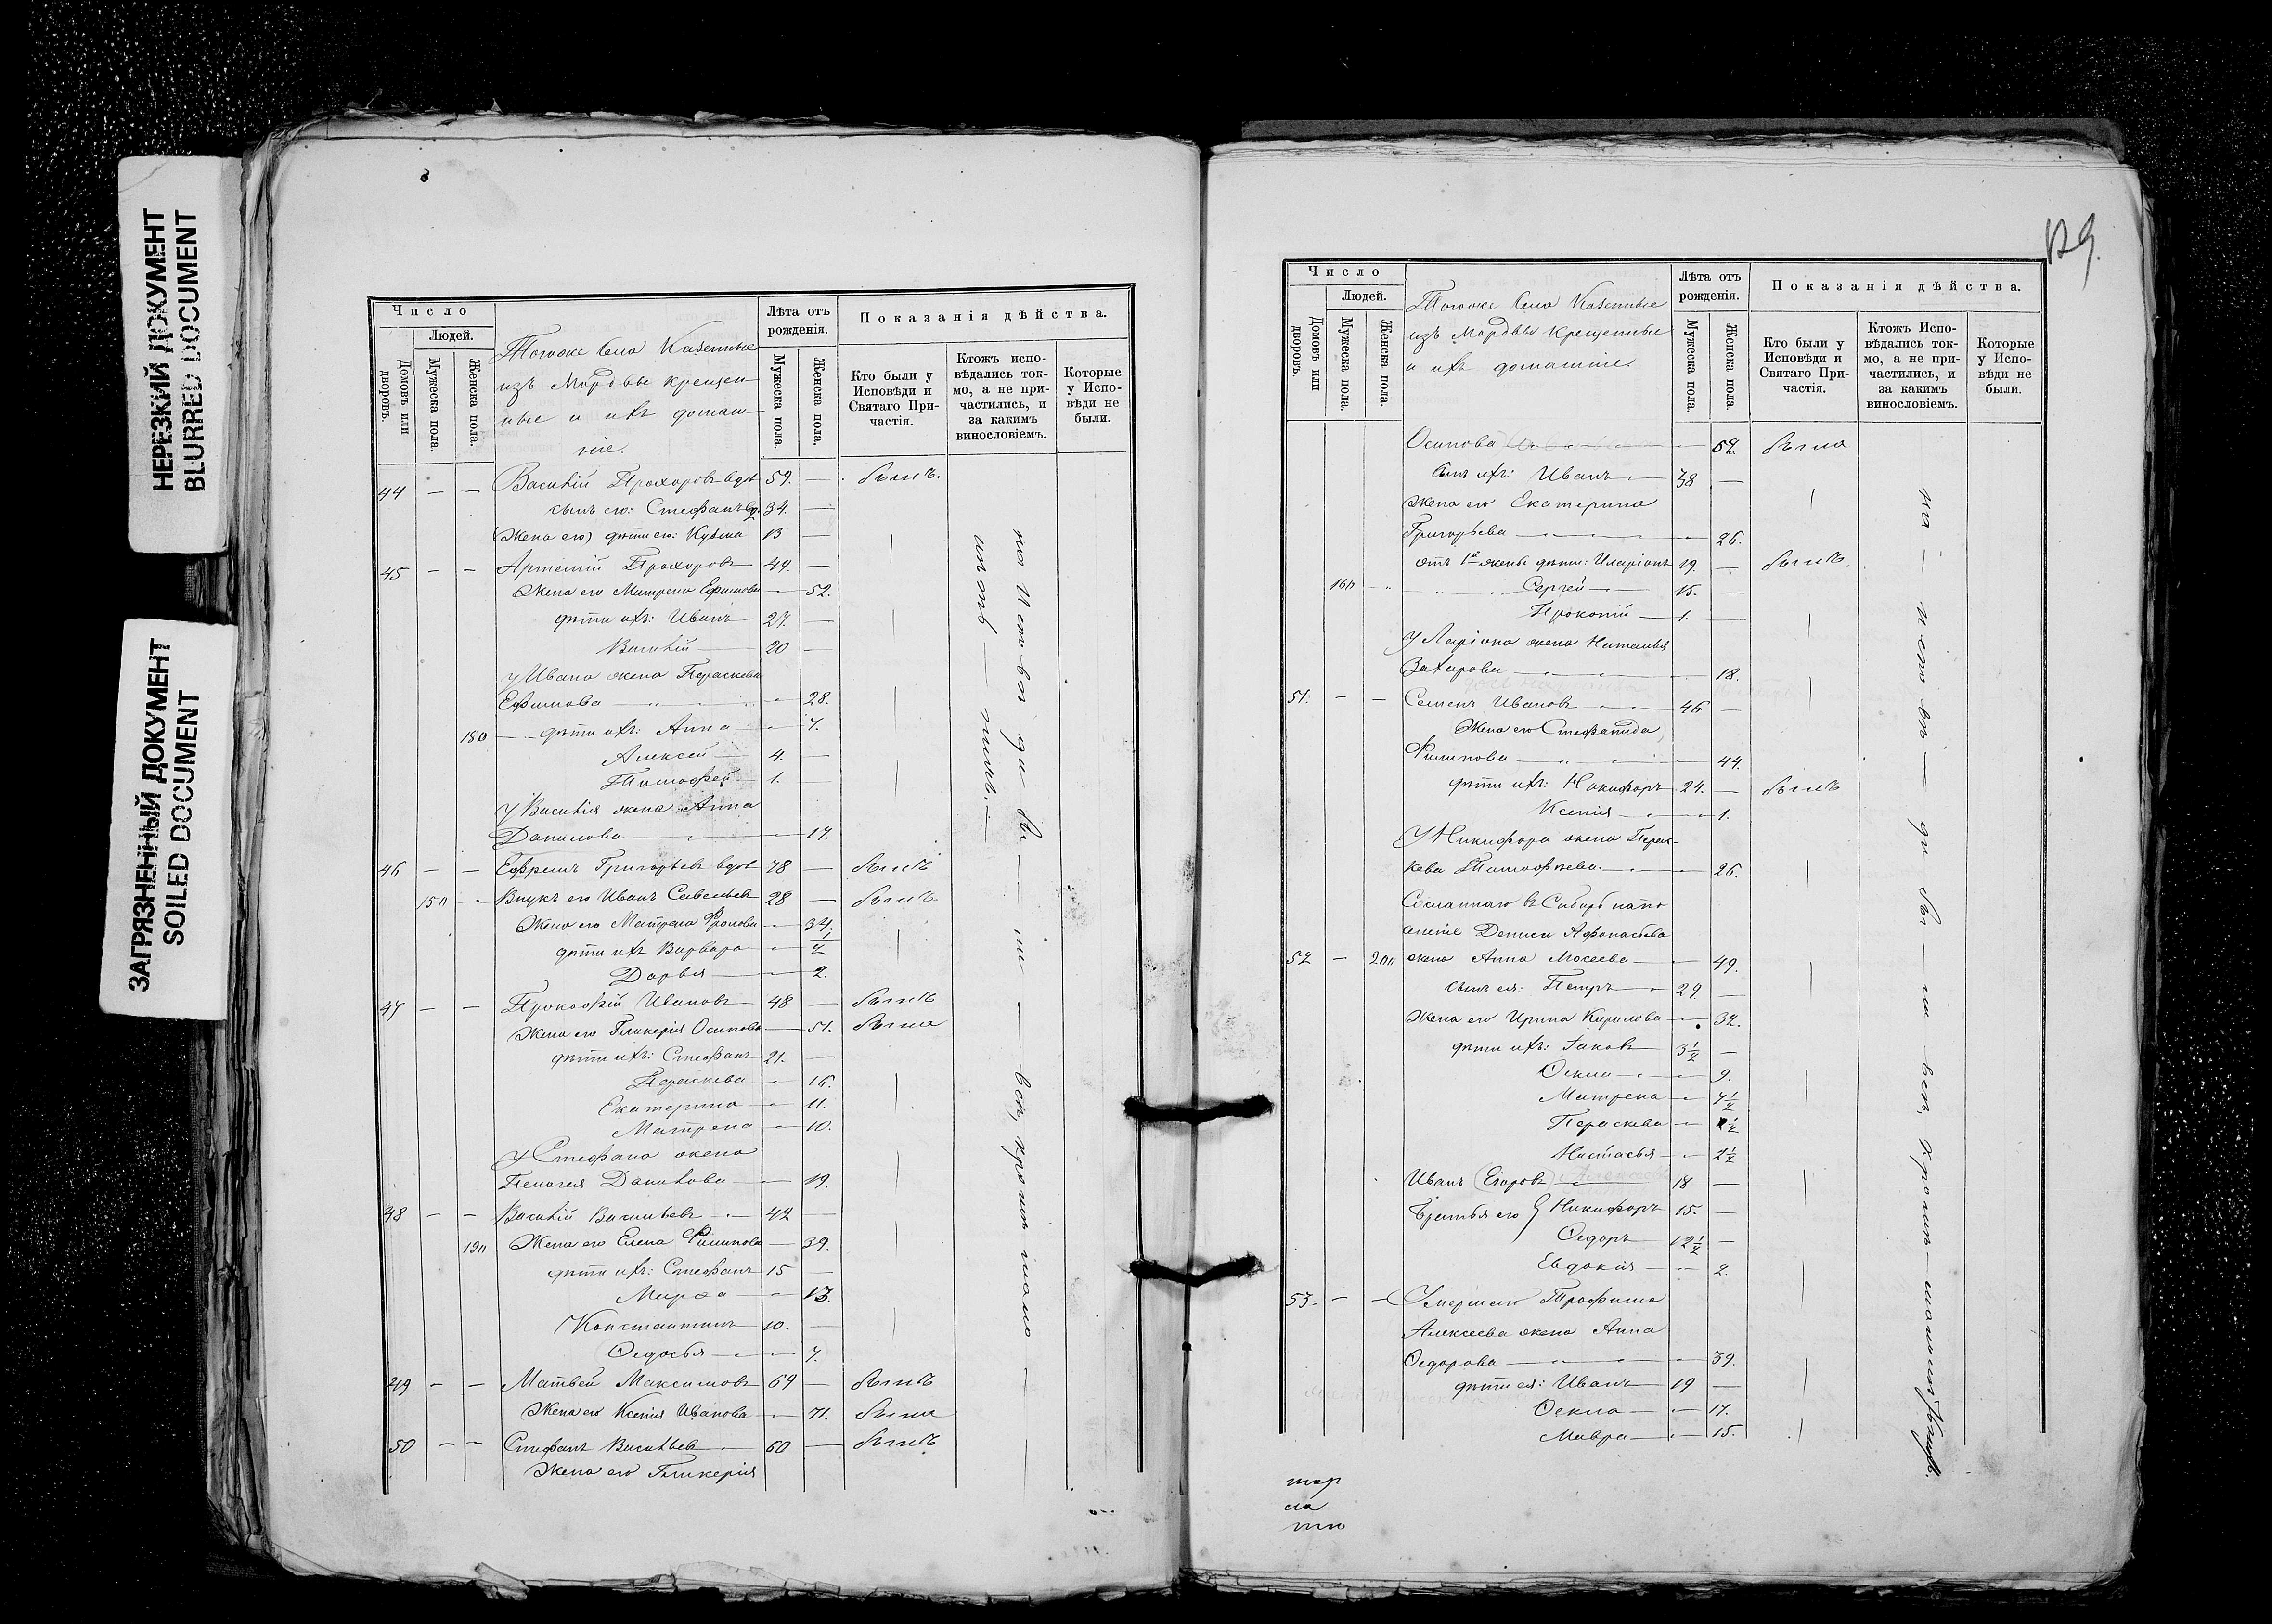 НЕРЕЗКИЙ ДОКУМЕНТ
BLURRED DOCUMENT
ЗАГРЯЗНЕННЫЙ ДОКУМЕНТ
SOILED DOCUMENT
Число
Людей.
Домовъ или дворовъ.
Мужеска пола.
Женска пола.
Тогоже Села Казенные
изъ Мордвы крещен-
ные и ихъ домаш-
ніе.
Лѣта отъ рожденія.
Мужеска пола.
Женска пола.
Показанія дѣйства.
Кто были у Исповѣди и Святаго При-частія.
Ктожъ испо-вѣдались ток-мо, а не при-частились, и за какимъ винословіемъ.
Которые у Испо-вѣди не были.
44 — — Василій Прохоровъ вдов 59. — былъ.
сынъ его: Стефанъ 34. —
(Жена его) дѣти его: Кузма 13 —
45 — — Артемій Прохоровъ 49. —
Жена его Матрена Ефимова — 52.
дѣти ихъ: Иванъ 27. —
Василій 20 —
У Ивана жена Параскева
Ефимова — 28.
180 — дѣти ихъ: Анна — 7.
Алексей 4. —
Тимофей 1. —
У Василія жена Анна
Данилова — 17.
46 — — Ефремъ Григорьевъ вдов 78 — былъ
150 — Внукъ его Иванъ Савельевъ 28 — былъ
Жена его Матрена Фролова — 34.
дѣти ихъ Варвара — 1/2
Дарья — 2.
47 — — Прокофій Ивановъ 48 — былъ
Жена его Гликерія Осипова — 51. была
дѣти ихъ: Стефанъ 21. —
Параскева — 16.
Екатерина — 11.
Матрена — 10.
У Стефана жена
Пелагея Данилова — 19.
48 — — Василій Васильевъ 42 —
190 Жена его Елена Филипова — 39.
дѣти ихъ: Стефанъ 15 —
Марѳа — 13.
Константинъ 10. —
Ѳедосья — 7.
49 — — Матвей Максимовъ 69 — былъ
Жена его Ксенія Иванова — 71. была
50 — — Стефанъ Васильевъ 60 — былъ
Жена его Гликерія
129.
Число
Людей.
Домовъ или дворовъ.
Мужеска пола.
Женска пола.
Тогоже Села Казенные
изъ Мордвы крещенные
и ихъ домашніе.
Лѣта отъ рожденія.
Мужеска пола.
Женска пола.
Показанія дѣйства.
Кто были у Исповѣди и Святаго При-частія.
Ктожъ Испо-вѣдались ток-мо, а не при-частились, и за какимъ винословіемъ.
Которые у Испо-вѣди не были.
Осипова — 59. была
сынъ ихъ: Иванъ 38 —
Жена его Екатерина
Григорьева — 26.
отъ 1й жены дѣти: Иларіонъ 19. — былъ
160 Сергей 15. —
Прокопій 1. —
У Ларіона жена Наталья
Захарова — 18.
51. — — Семенъ Ивановъ 46 —
Жена его Стефанида
Филипова — 44.
дѣти ихъ: Никифоръ 24. — былъ
Ксенія — 1.
У Никифора жена Парас-
кева Тимофеева — 26.
Сосланнаго в Сибирь на по
селеніе Дениса Афонасьева
52 — 200 жена Анна Мосеева — 49.
сынъ ея: Петръ 29. —
Жена его Ирина Кирилова — 32.
дѣти ихъ: Іаковъ 3 1/2 —
Ѳекла — 9.
Матрена — 7 1/2
Параскева — 1/2
Настасья — 2 1/2
Иванъ (Егоровъ) 18 —
Братья его Никифоръ 15. —
Ѳедоръ 12 1/2 —
Евдокія — 2.
53. — — Умершаго Трофима
Алексеева жена Анна
Ѳедорова — 39.
дѣти ея: Иванъ 19 —
Ѳекла — 17.
Мавра — 15.